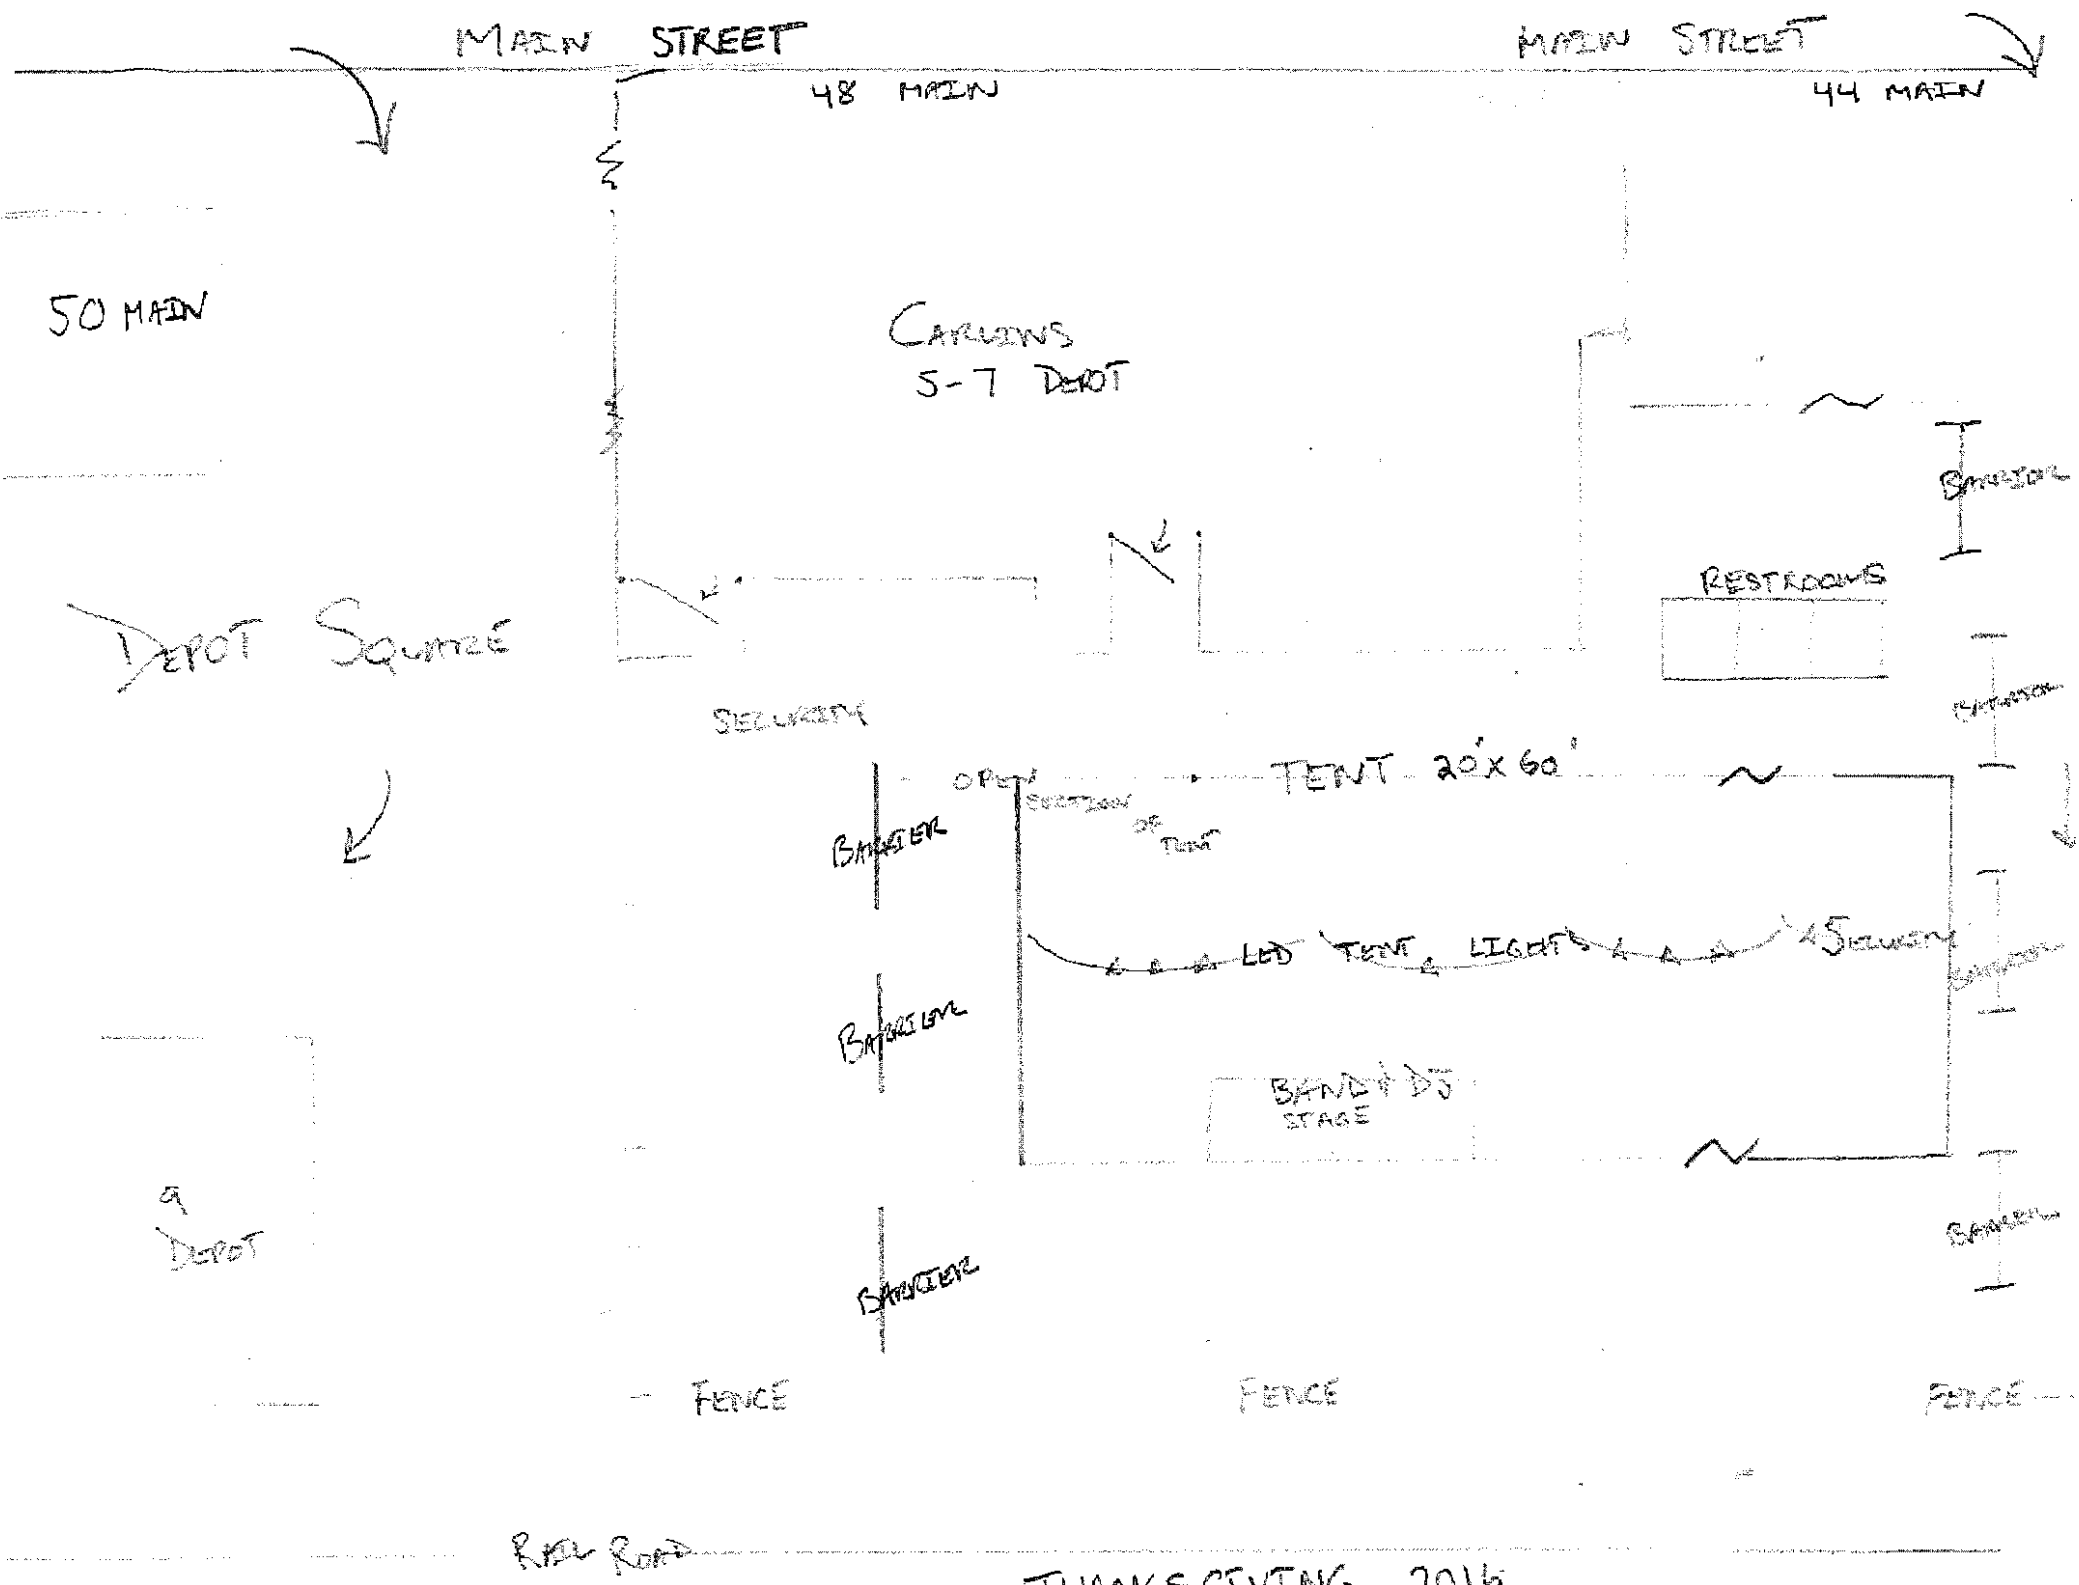 MAIN STREET
MAIN STREET
48 MAIN
44 MAIN
50 MAIN
CARLINS
5-7 DEPOT
BARRIER
RESTROOMS
DEPOT SQUARE
BARRIER
SECURITY
OPEN
SECTION
OF
TENT
TENT 20'X60'
BARRIER
LED TENT LIGHTS
SECURITY
BARRIER
BARRIER
BAND & DJ
STAGE
9
DEPOT
BARRIER
BARRIER
FENCE
FENCE
FENCE
RAIL ROAD
THANKSGIVING 2016